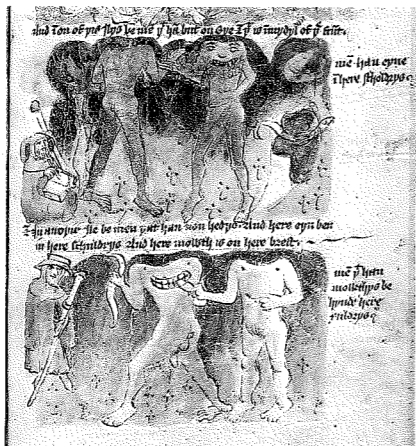 And Ton of yis ylys be mē yᵗ ha but on eye yᵗ is in mydyl of yᵉ
mē hau eyne
i here scholdrys
In anoyur ile be men yat han non hedys. And here eyn ben
in here schuldrys And here mowth is on here brest.
mē yᵗ hau
mowthys be
hynde here